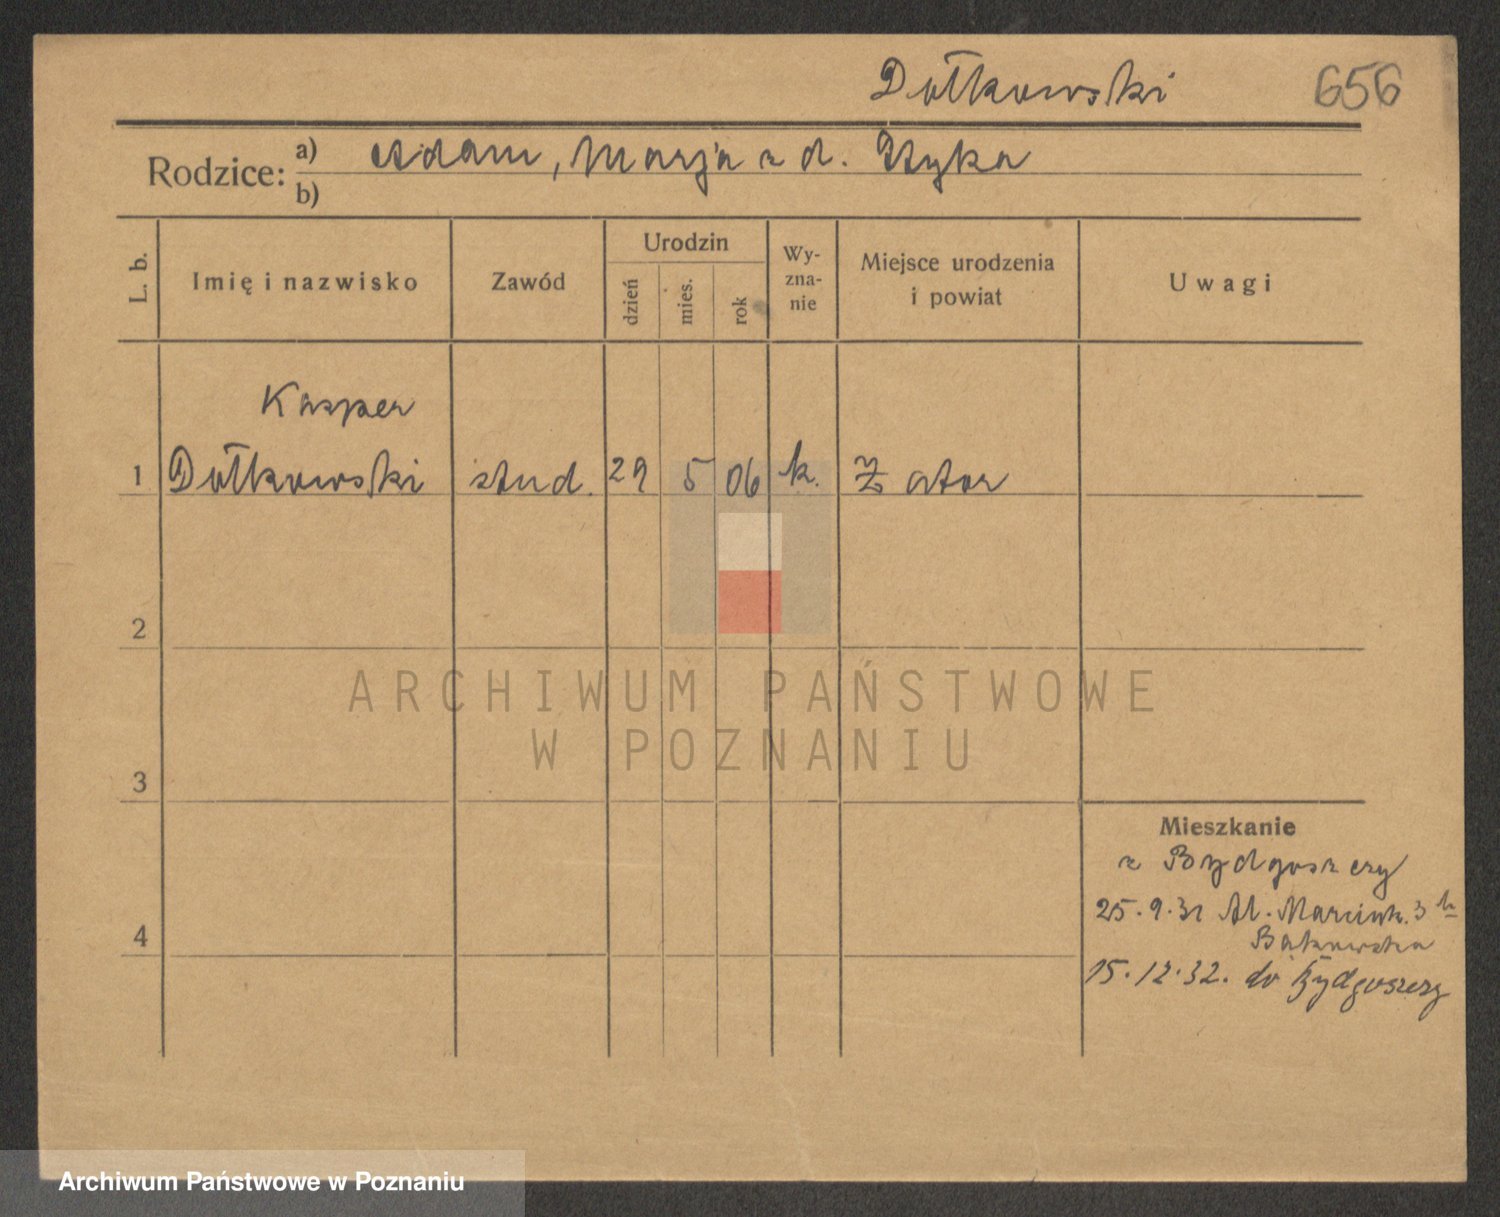 Dołkowski 656
Rodzice: a) Adam, Marja z d. Hyka
b)
L. b. Imię i nazwisko Zawód Urodzin dzień mies. rok Wy-zna-nie Miejsce urodzenia i powiat Uwagi
Kasper
1 Dołkowski stud. 29 5 06 k. Zator
2
ARCHIWUM PAŃSTWOWE
W POZNANIU
3
Mieszkanie
z Bydgoszczy
25.9.31 Al. Marcink. 3
4
15.12.32. do Bydgoszczy
Archiwum Państwowe w Poznaniu